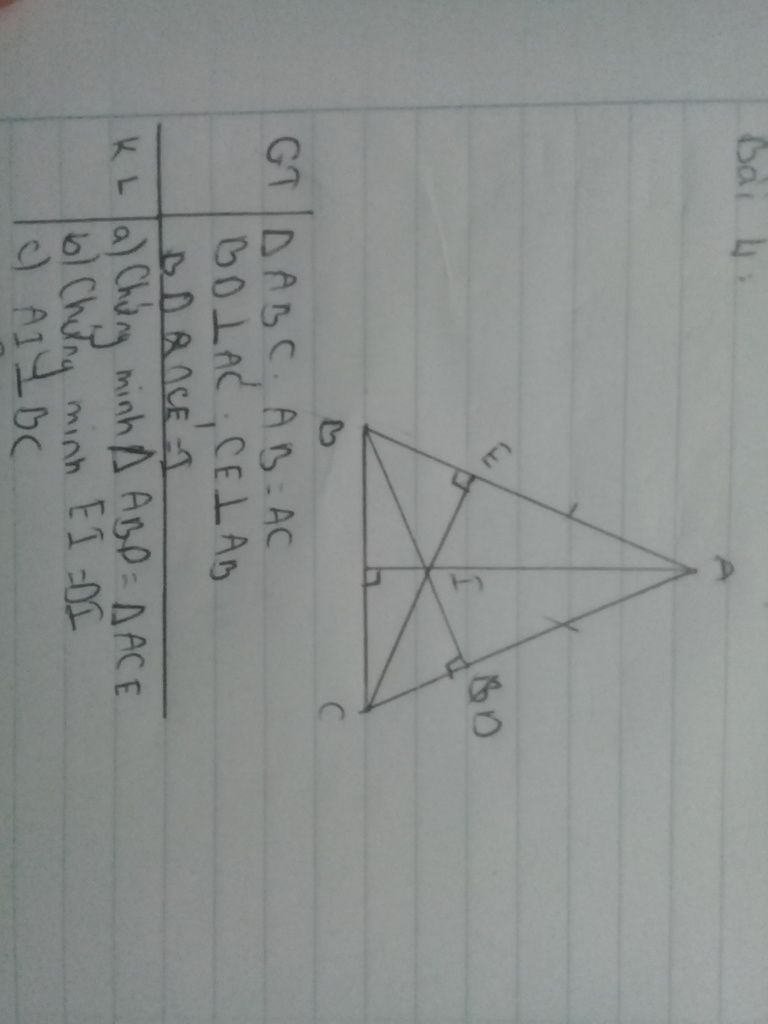 Bài 4:
A
E
I
D
B
C
GT
Δ ABC. AB = AC
BD ⊥ AC. CE ⊥ AB
BD ∩ CE = I
KL
a) Chứng minh Δ ABD = Δ ACE
b) Chứng minh EI = DI
c) AI ⊥ BC